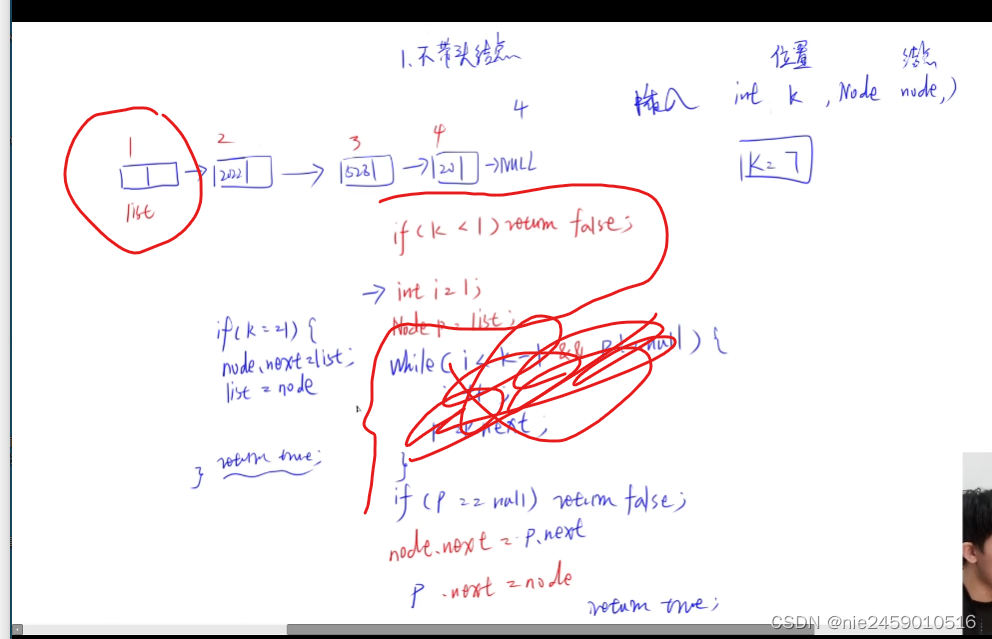 1.不带头结点
位置 结点
插入 int k , Node node,)
4
1 2 3 4
2022 → 5231 → 201 →NULL
list
K=7
if(k<1)return false;
→ int i=1;
Node p=list;
if(k==1){
node.next=list;
list=node
} return true;
while(i<k-1 && p!=null){
p=p.next;
}
if(p==null) return false;
node.next=p.next
p.next=node
return true;
CSDN @nie2459010516